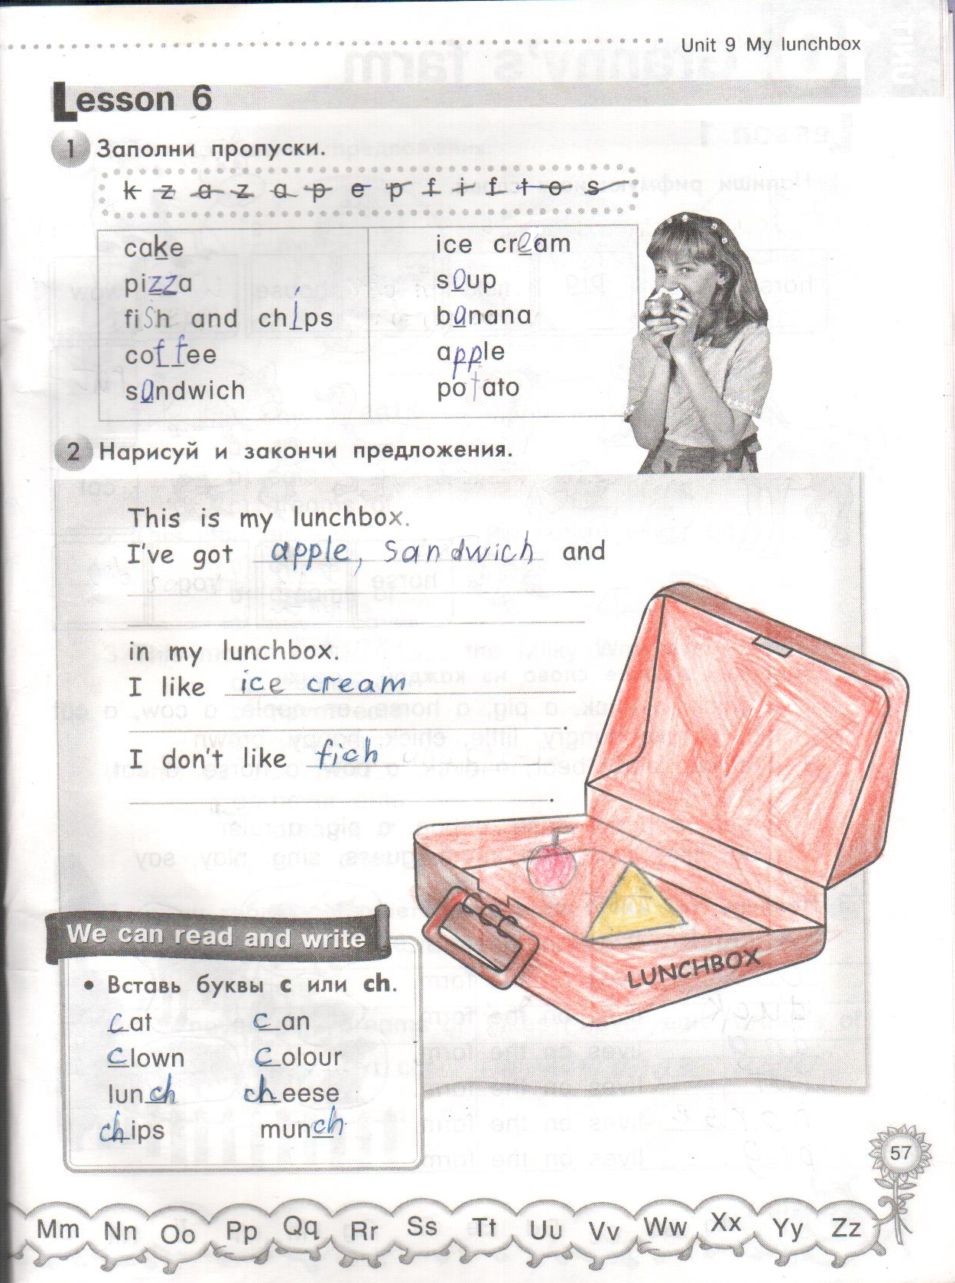 Unit 9 My lunchbox
Lesson 6
1 Заполни пропуски.
k z a z a p e p f i f t o s
cake
pizza
fish and chips
coffee
sandwich
ice cream
soup
banana
apple
potato
2 Нарисуй и закончи предложения.
This is my lunchbox.
I've got apple, sandwich and
in my lunchbox.
I like ice cream
.
I don't like fich
.
LUNCHBOX
We can read and write
• Вставь буквы c или ch.
cat can
clown colour
lunch cheese
chips munch
57
Mm Nn Oo Pp Qq Rr Ss Tt Uu Vv Ww Xx Yy Zz